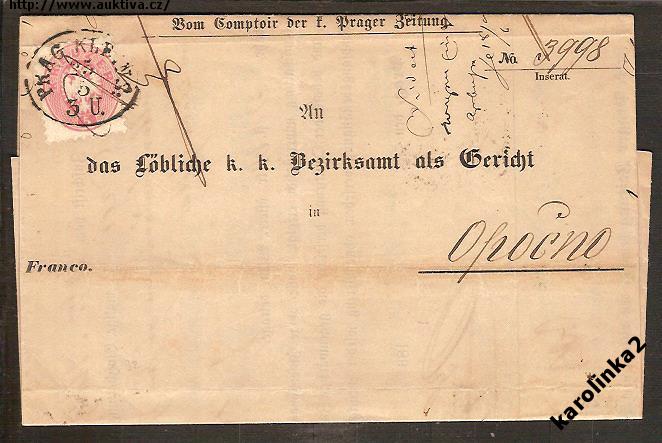 http://www.auktiva.cz/
Vom Comptoir der k. Prager Zeitung.
No 3998
Inserat.
PRAG KLE.
3 U.
An
das Löbliche k. k. Bezirksamt als Gericht
in
Opočno
Franco.
karolinka2